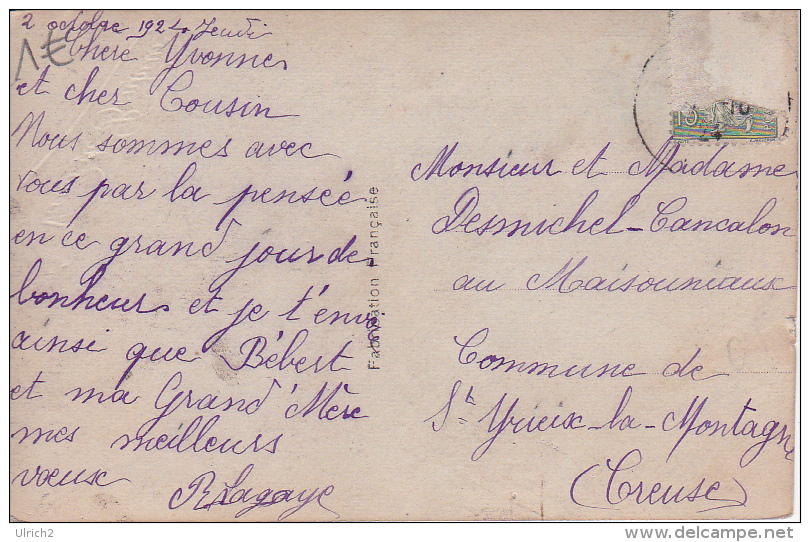 2 octobre 1924. Jeudi
1€
Chere Yvonne
et cher Cousin
Nous sommes avec
vous par la pensée
en ce grand jour de
bonheur et je t'envoie
ainsi que Bébert
et ma Grand'Mère
mes meilleurs
voeux
R Lagaye
Fabrication Française
10
24
Monsieur et Madame
Desmichel-Cancalon
au Maisouniaux
Commune de
St Yrieix-la-Montagne
(Creuse)
Ulrich2
delcampe.net